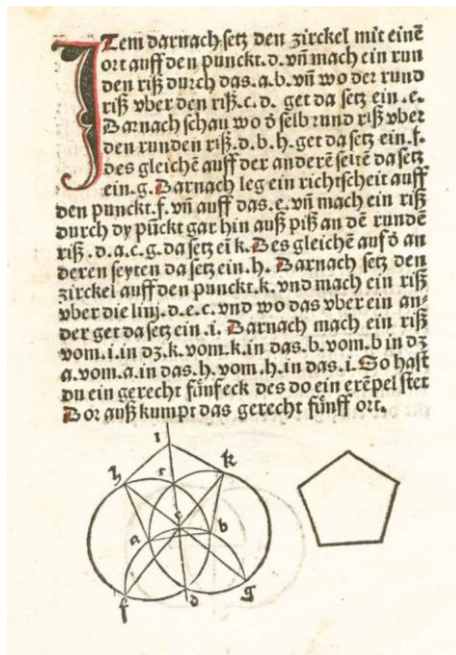 Item darnach setz den zirckel mit einē
ort auff den punckt.d.vn̄ mach ein run
den riß durch das.a.b.vn̄ wo der rund
riß vber den riß.c.d. get da setz ein.e.
Darnach schau wo d̄ selb rund riß vber
den runden riß.d.b.h.get da setz ein.f.
des gleichē auff der anderē seitē da setz
ein.g.Darnach leg ein richtscheit auff
den punckt.f.vn̄ auff das.e.vn̄ mach ein riß
durch dy pūckt gar hin auß piß an dē rundē
riß.d.a.c.g.da setz eī k.Des gleichē auf d̄ an
deren seyten da setz ein.h. Darnach setz den
zirckel auff den punckt.k.vnd mach ein riß
vber die linj.d.e.c.vnd wo das vber ein an⸗
der get da setz ein.i. Darnach mach ein riß
vom.i.in dz.k.vom.k.in das.b.vom.b in dz
a.vom.a in das.h.vom.h.in das.i.So hast
du ein gerecht fünfeck des do ein exēpel stet
Dor auß kumpt das gerecht fünff ort.
i
h
k
c
e
a
b
f
d
g